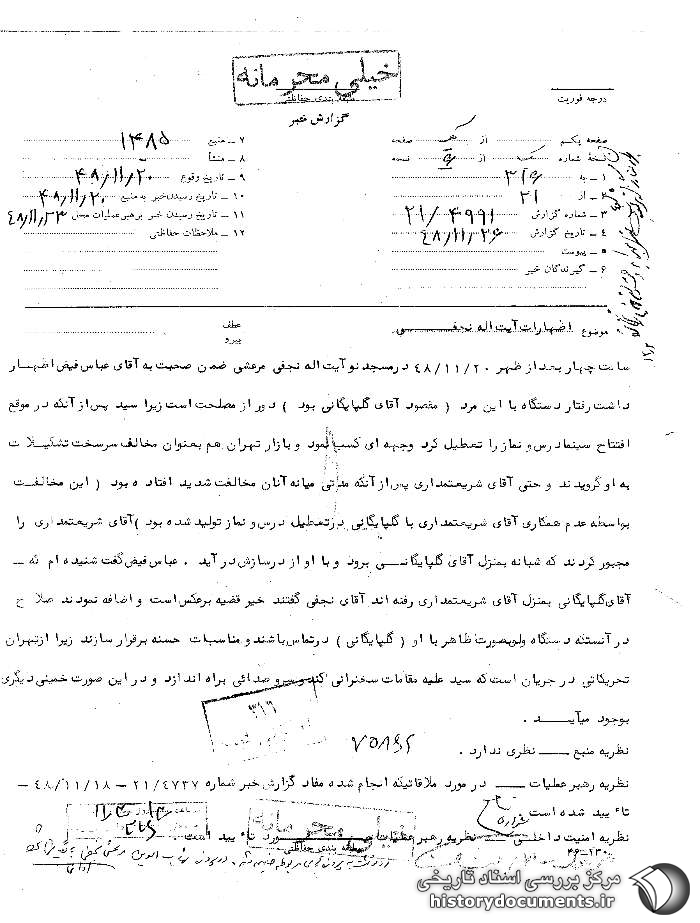 خیلی محرمانه
طبقه بندی حفاظتی
گزارش خبر
درجه فوریت
صفحه یکم از صفحه
نسخه شماره از نسخه
۱ ـ به ۳۱۶
۲ ـ از ۲۱
۳ ـ شماره گزارش ۲۱/۴۹۹۱
۴ ـ تاریخ گزارش ۴۸/۱۱/۲۶
۵ ـ پیوست
۶ ـ گیرندگان خبر
۷ ـ منبع ۱۴۸۵
۸ ـ منشأ
۹ ـ تاریخ وقوع ۴۸/۱۱/۲۰
۱۰ ـ تاریخ رسیدن خبر به منبع ۴۸/۱۱/۲۰
۱۱ ـ تاریخ رسیدن خبر برهبر عملیات محل ۴۸/۱۱/۲۳
۱۲ ـ ملاحظات حفاظتی
موضوع اظهارات آیت اله نجفی
عطف
پیرو
ساعت چهار بعد از ظهر ۴۸/۱۱/۲۰ در مسجد نو آیت اله نجفی مرعشی ضمن صحبت به آقای عباس فیض اظهار
داشت رفتار دستگاه با این مرد ( مقصود آقای گلپایگانی بود ) دور از مصلحت است زیرا سید پس از آنکه در موقع
افتتاح سینما درس و نماز را تعطیل کرد وجهه ای کسب نمود و بازار تهران هم بعنوان مخالف سرسخت تشکیلات
به او گرویدند و حتی آقای شریعتمداری پس از آنکه مدتی میانه آنان مخالفت شدید افتاده بود ( این مخالفت
بواسطه عدم همکاری آقای شریعتمداری با گلپایگانی در تعطیل درس و نماز تولید شده بود ) آقای شریعتمداری را
مجبور کردند که شبانه بمنزل آقای گلپایگانی برود و با او از در سازش در آید . عباس فیض گفت شنیده ام که ـ
آقای گلپایگانی بمنزل آقای شریعتمداری رفته اند آقای نجفی گفتند خیر قضیه برعکس است و اضافه نمودند صلاح
در آنستکه دستگاه ولو بصورت ظاهر با او ( گلپایگانی ) در تماس باشند و مناسبات حسنه برقرار سازند زیرا از تهران
تحریکاتی در جریان است که سید علیه مقامات سخنرانی کند و سرو صدائی براه اندازد و در این صورت خمینی دیگری
بوجود میآید .
۳۱۶
نظریه منبع ـــ نظری ندارد .
نظریه رهبر عملیات ـــ در مورد ملاقاتیکه انجام شده مفاد گزارش خبر شماره ۲۱/۴۷۳۷ ـ ۴۸/۱۱/۱۸ ـ
تاء یید شده است
نظریه امنیت داخلی ـ نظریه رهبر عملیات مورد تاء یید است
خیلی محرمانه
طبقه بندی حفاظتی
مرکز بررسی اسناد تاریخی
historydocuments.ir